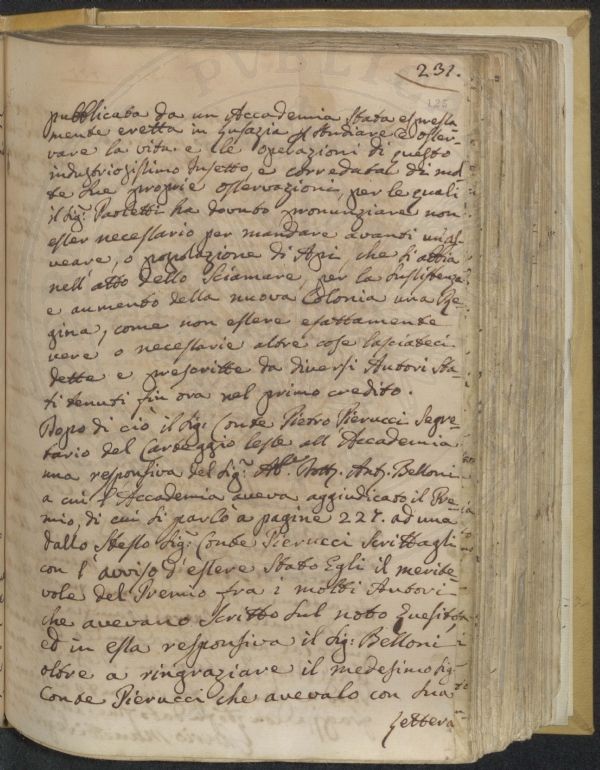 231.
125
pubblicata da un Accademia stata espressa
mente eretta in Lusazia p studiare e osser
vare la vita e le operazioni di questo
industriosissimo Insetto, e corredata di mol
te sue proprie osservazioni, per le quali
il Sig.r Paoletti ha dovuto pronunziare non
esser necessario per mandare avanti un al
veare, o popolazione di Api che si abbia
nell' atto dello sciamare, per la sussistenza
e aumento della nuova Colonia una Re
gina, come non essere esattamente
vere o necessarie altre cose lasciateci
dette e prescritte da diversi Autori sta
ti tenuti fin ora nel primo credito.
Dopo di ciò il Sig. Conte Pietro Pierucci Segre
tario del Carteggio lesse all' Accademia
una responsiva del Sig.r Ab.e Dott. Ant. Belloni
a cui l' Accademia aveva aggiudicato il Pre
mio, di cui si parlò a pagine 227. ad una
dallo stesso Sig.r Conte Pierucci scrittagli
con l' avviso d' essere stato Egli il merite
vole del Premio fra i molti Autori
che avevano scritto sul noto Quesito,
ed in essa responsiva il Sig: Belloni
oltre a ringraziare il medesimo Sig.
Conte Pierucci che avevalo con sua
Lettera